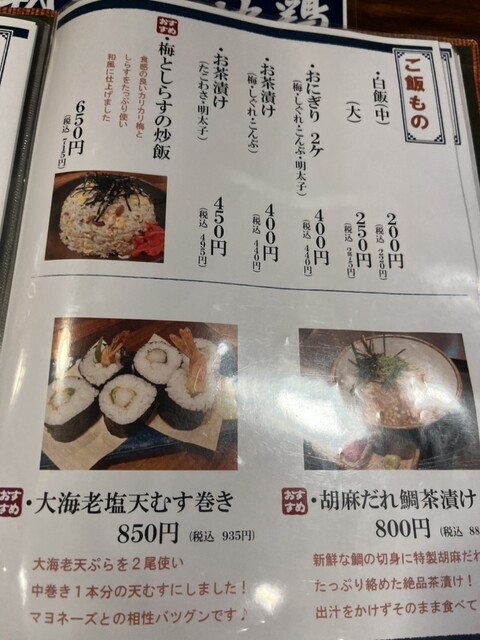 ご飯もの
・白飯(中)
200円
(税込 220円)
(大)
250円
(税込 275円)
・おにぎり 2ケ
(梅・しぐれ・こんぶ・明太子)
400円
(税込 440円)
・お茶漬け
(梅・しぐれ・こんぶ)
400円
(税込 440円)
・お茶漬け
(たこわさ・明太子)
450円
(税込 495円)
おすすめ
・梅としらすの炒飯
食感の良いカリカリ梅と
しらすをたっぷり使い
和風に仕上げました
650円
(税込 715円)
おすすめ
・大海老塩天むす巻き
850円 (税込 935円)
大海老天ぷらを2尾使い
中巻き1本分の天むすにしました!
マヨネーズとの相性バツグンです♪
おすすめ
・胡麻だれ鯛茶漬け
800円 (税込 88
新鮮な鯛の切身に特製胡麻だれ
たっぷり絡めた絶品茶漬け!
出汁をかけずそのまま食べて